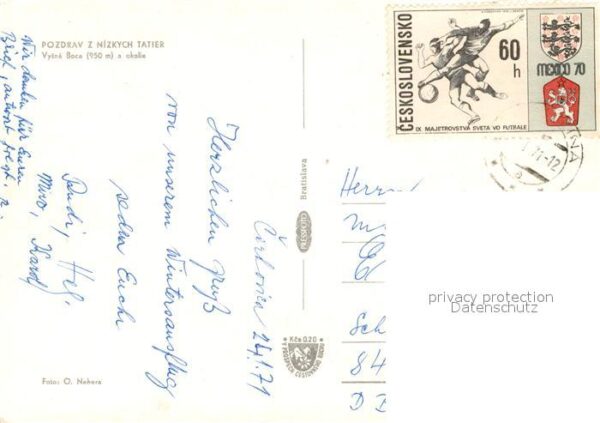 POZDRAV Z NÍZKYCH TATIER
Vyšná Boca (950 m) a okolie
Wir danken für Euren
Brief, antwort folgt.
Čirkovica 24.1.71
Herzlichen Gruß
von unserem Winterausflug
senden Euch
Rudi, Hel.
Miro, Karol
Foto: O. Nehera
PRESSFOTO
Bratislava
Kčs 0,20
ČESKOSLOVENSKO
60
h
MEXICO 70
IX MAJSTROVSTVÁ SVETA VO FUTBALE
Herrn
Sch
84
D D
privacy protection
Datenschutz